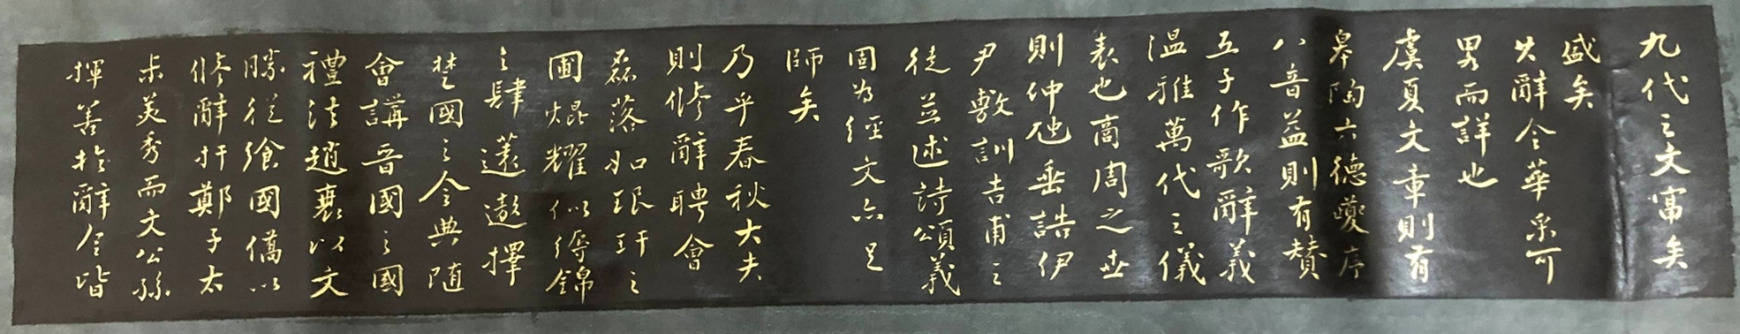 九代之文富矣
盛矣
其辭令華采可
畧而詳也
虞夏文章則有
皋陶六德夔序
八音益則有贊
五子作歌辭義
溫雅萬代之儀
表也商周之世
則仲虺垂誥伊
尹敷訓吉甫之
徒並述詩頌義
固為經文亦足
師矣
乃乎春秋大夫
則修辭聘會
磊落如琅玕之
圃焜耀似縟錦
之肆薳遨擇
楚國之令典随
會講晉國之國
禮法趙衰以文
勝從飨國僑以
修辭扞鄭子太
叔美秀而文公孫
揮善於辭令皆